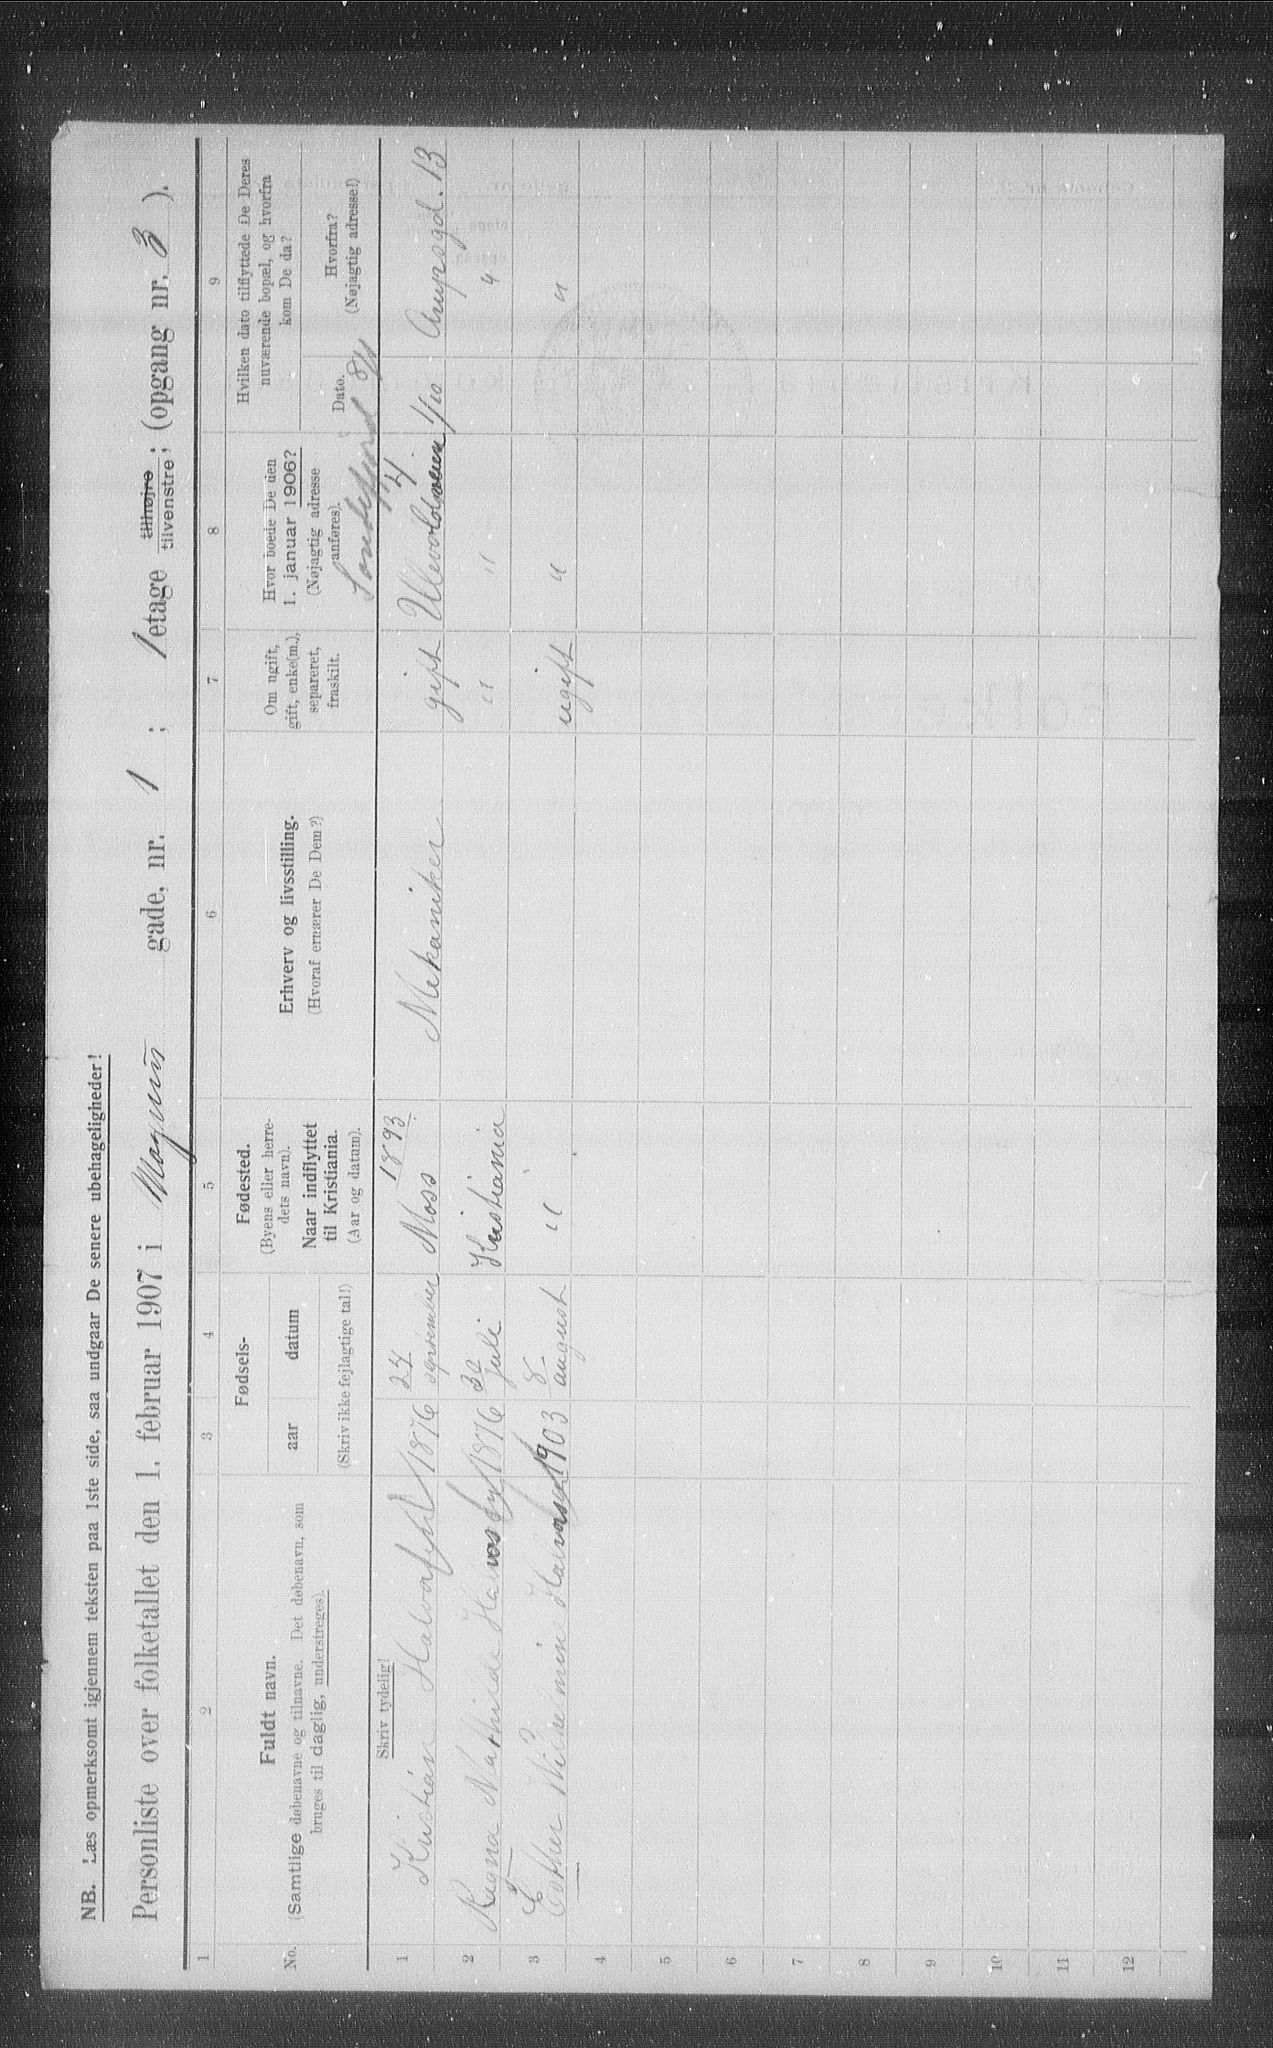 NB. Læs opmerksomt igjennem teksten paa 1ste side, saa undgaar De senere ubehageligheder!
Personliste over folketallet den 1. februar 1907 i Magnus gade, nr. 1 ; 1 etage tilhøjre tilvenstre ; (opgang nr. 3 ).
1 2 3 4 5 6 7 8 9
No.
Fuldt navn.
(Samtlige døbenavne og tilnavne. Det døbenavn, som
bruges til daglig, understreges).
Fødsels-
aar datum
(Skriv ikke fejlagtige tal!)
Fødested.
(Byens eller herre-
dets navn).
Naar indflyttet
til Kristiania.
(Aar og datum).
Erhverv og livsstilling.
(Hvoraf ernærer De Dem?)
Om ugift,
gift, enke(m.),
separeret,
fraskilt.
Hvor boede De den
1. januar 1906?
(Nøjagtig adresse
anføres).
Hvilken dato tilflyttede De Deres
nuværende bopæl, og hvorfra
kom De da?
Dato.
Hvorfra?
(Nøjagtig adresse!)
Skriv tydelig!
1 Kristian 1876 27 september Moss 1893 Mekaniker gift 4 1/10 13
2 Ragna Mathilde 1876 30 juli Kristiania " " "
3 Esther Wilhelmine 1903 8 august " ugift " "
4
5
6
7
8
9
10
11
12